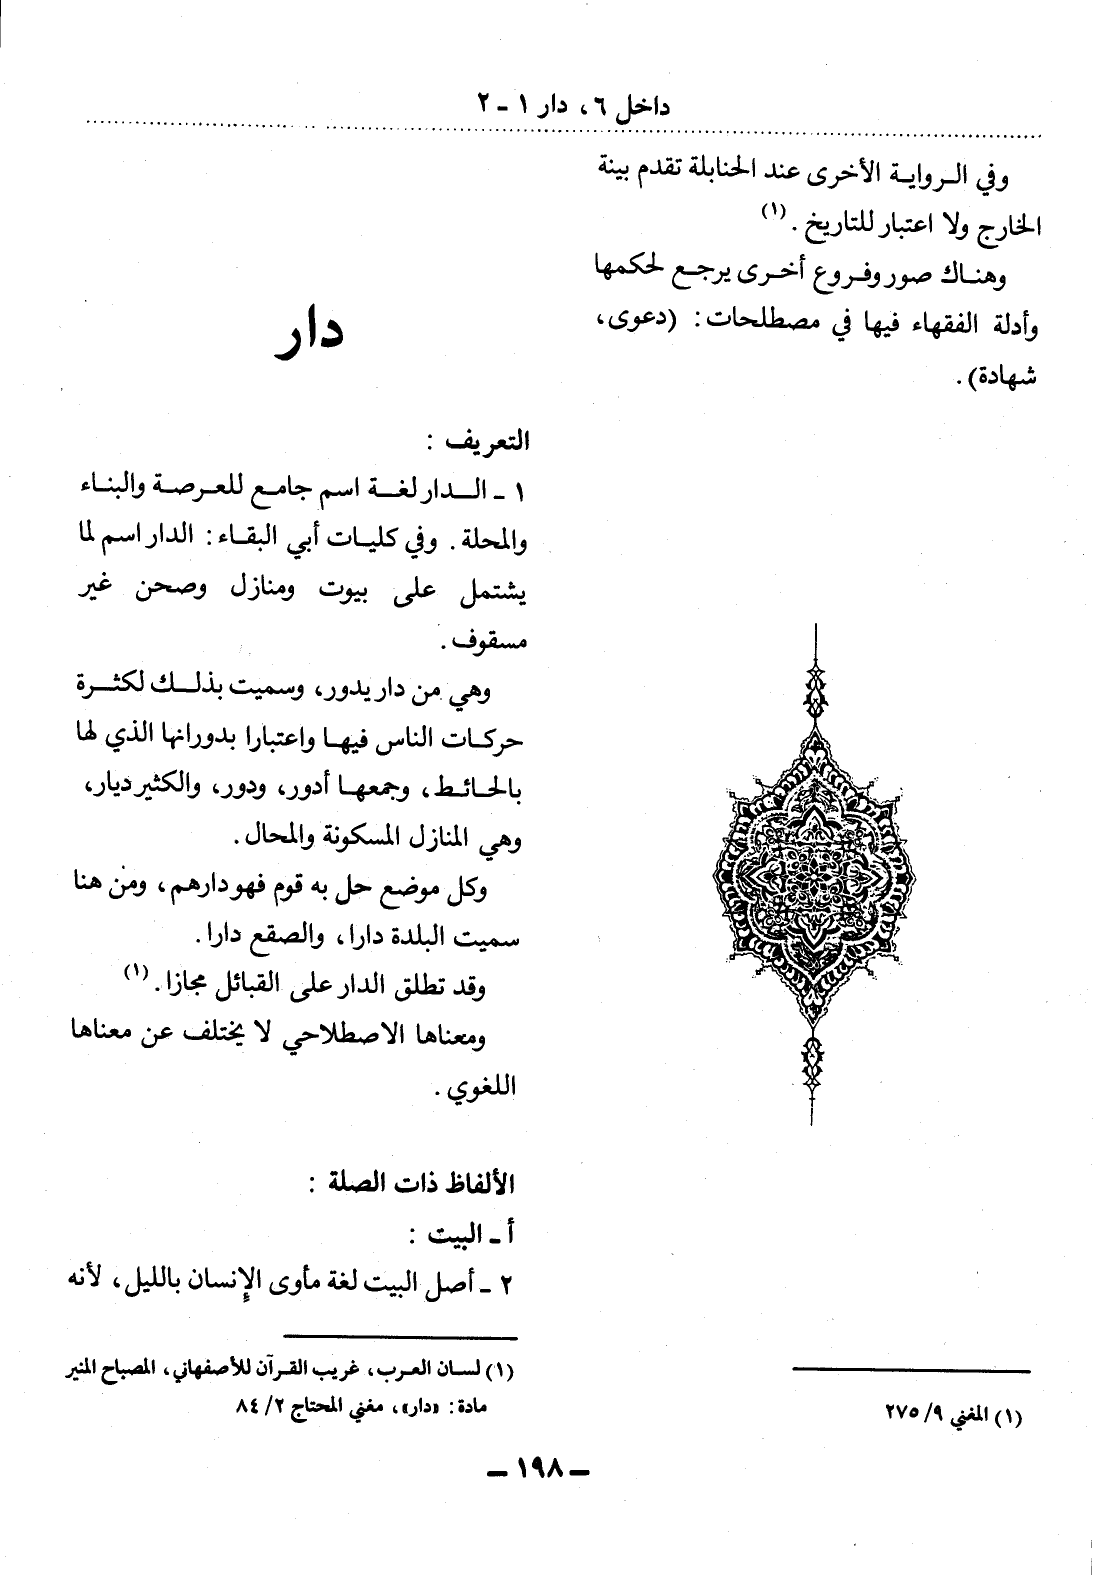 داخل ٦، دار ١ - ٢
وفي الرواية الأخرى عند الحنابلة تقدم بينة
الخارج ولا اعتبار للتاريخ . (١)
وهناك صور وفروع أخرى يرجع لحكمها
وأدلة الفقهاء فيها في مصطلحات : (دعوى،
شهادة) .
(١) المغني ٩/ ٢٧٥
دار
التعريف :
١ - الدار لغة اسم جامع للعرصة والبناء
والمحلة . وفي كليات أبي البقاء : الدار اسم لما
يشتمل على بيوت ومنازل وصحن غير
مسقوف .
وهي من دار يدور، وسميت بذلك لكثرة
حركات الناس فيها واعتبارا بدورانها الذي لها
بالحائط، وجمعها أدور، ودور، والكثير ديار،
وهي المنازل المسكونة والمحال .
وكل موضع حل به قوم فهو دارهم، ومن هنا
سميت البلدة دارا، والصقع دارا .
وقد تطلق الدار على القبائل مجازا . (١)
ومعناها الاصطلاحي لا يختلف عن معناها
اللغوي .
الألفاظ ذات الصلة :
أ - البيت :
٢ - أصل البيت لغة مأوى الإنسان بالليل، لأنه
(١) لسان العرب، غريب القرآن للأصفهاني، المصباح المنير
مادة : «دار»، مغني المحتاج ٢/ ٨٤
- ١٩٨ -